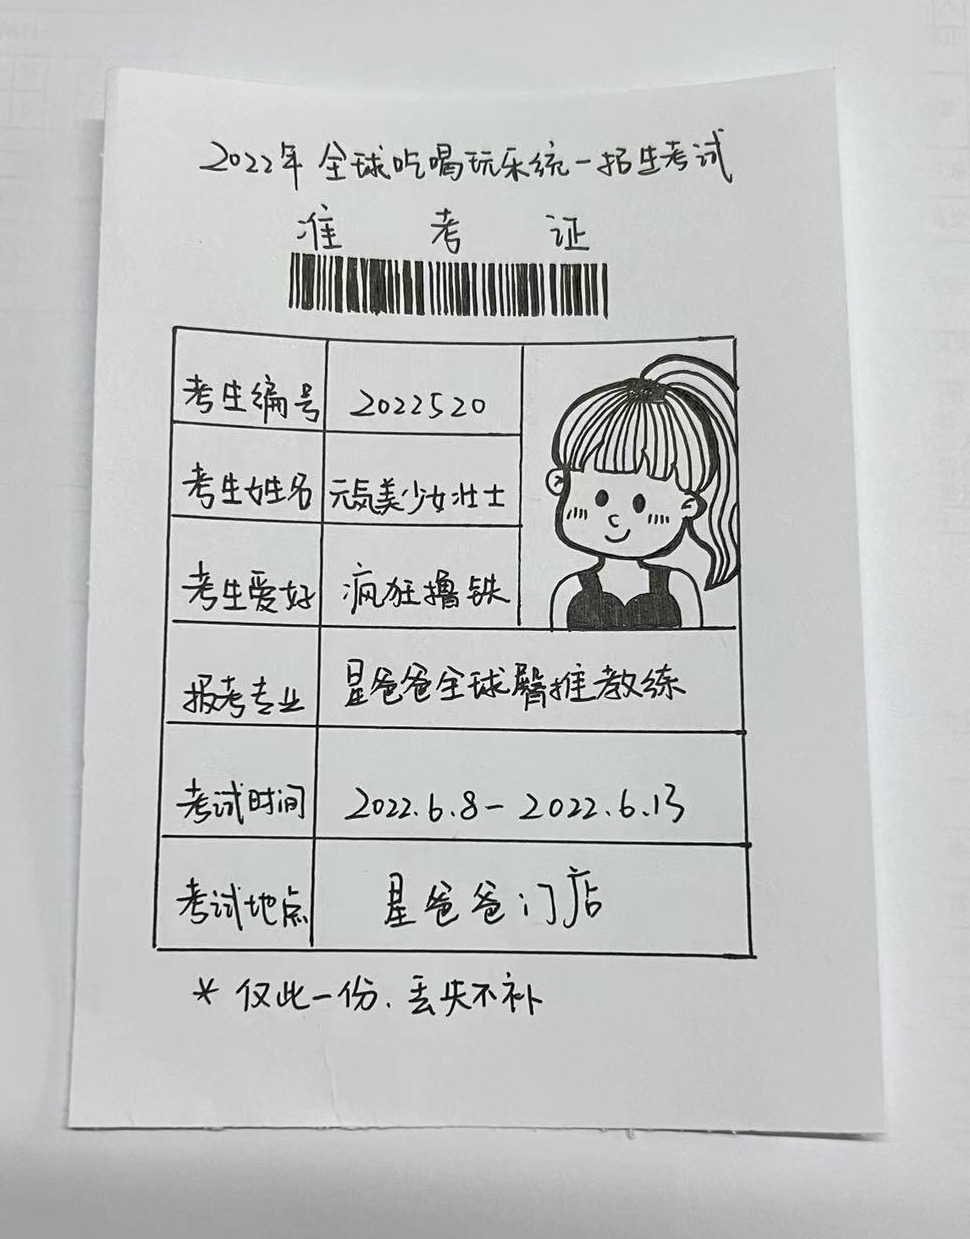 2022年 全球吃喝玩乐统一招生考试
准 考 证
考生编号 2022520
考生姓名 元気美少女壮士
考生爱好 疯狂撸铁
报考专业 星爸爸全球臀推教练
考试时间 2022.6.8-2022.6.13
考试地点 星爸爸门店
* 仅此一份、丢失不补